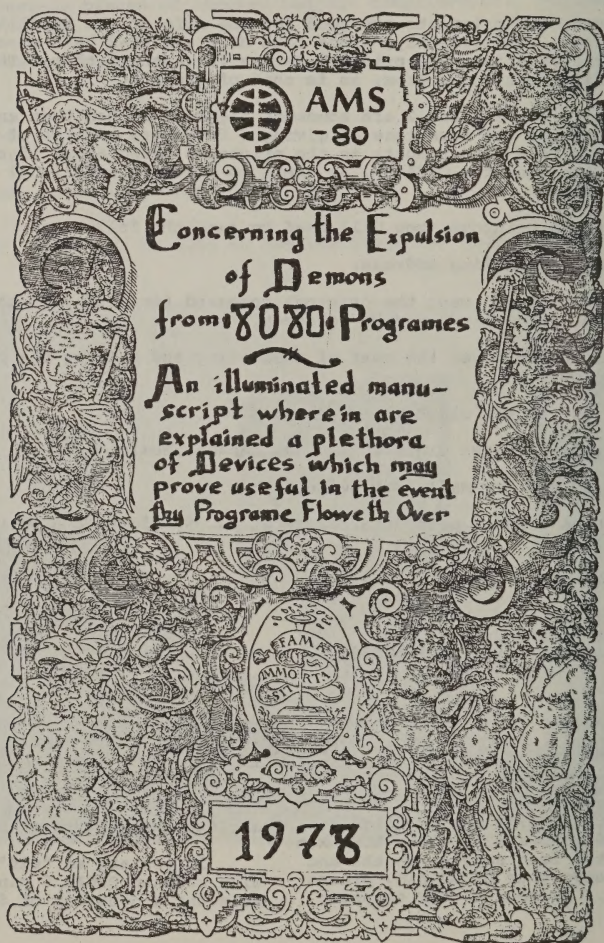 AMS
-80
Concerning the Expulsion
of Demons
from·8080·Programes
An illuminated manu-
script wherein are
explained a plethora
of Devices which may
prove useful in the event
thy Programe Floweth Over
FAMA
IMMORTA
1978